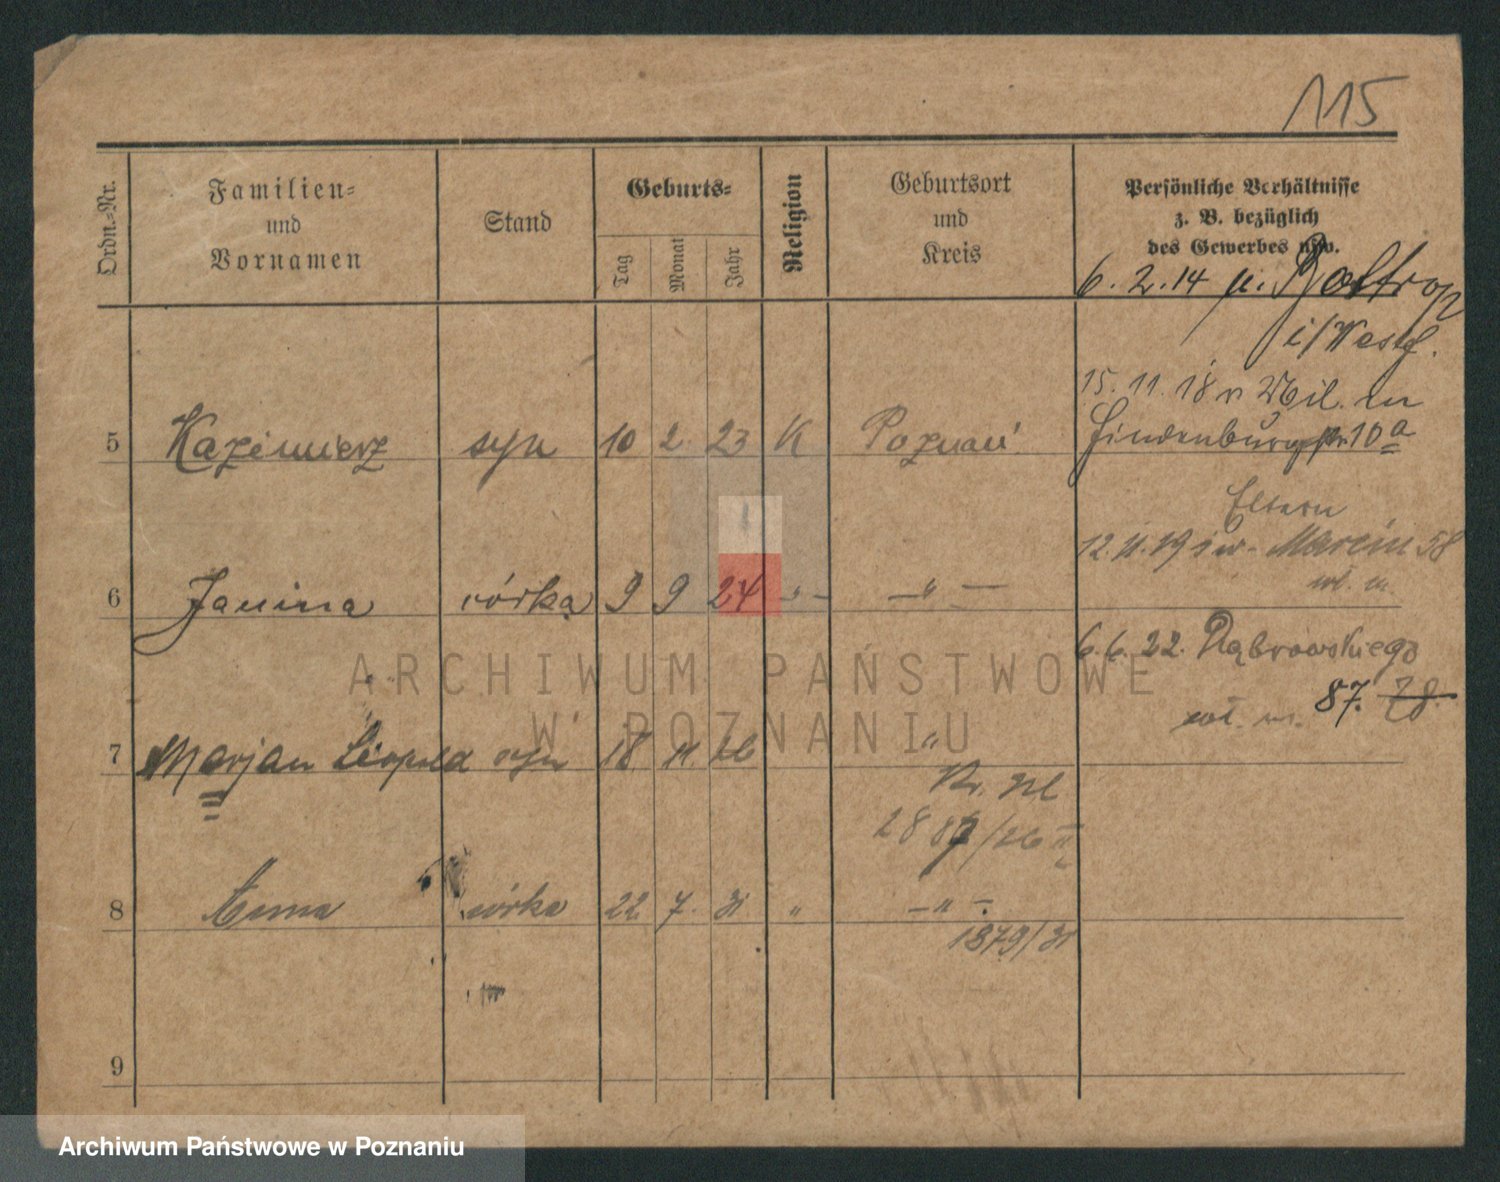 115
Ordn.=Nr.
Familien=
und
Vornamen
Stand
Geburts=
Tag
Monat
Jahr
Religion
Geburtsort
und
Kreis
Persönliche Verhältnisse
z. B. bezüglich
des Gewerbes usw.
6. 2. 14 n. Bottrop
i/Westf.
15. 11. 18 v Mil. in
Hindenburgstr. 10 a
5 Kazimierz syn 10 2 23 K Poznań
Eltern
12. 11. 19 Marcin 58
6 Janina córka 9 9 24 - " - - " -
6. 6. 22. Dąbrowskiego
87. 78.
ARCHIWUM PAŃSTWOWE
W POZNANIU
7 Marjan Leopold syn 18 11 26 "
8 Anna córka 22 7. 31 " - " -
1379/31
9
Archiwum Państwowe w Poznaniu